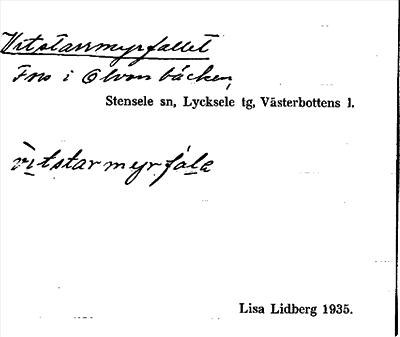 Vitstarrmyrfallet
Fors i Olvonbäcken,
Stensele sn, Lycksele tg, Västerbottens l.
vitstarmyrfála
Lisa Lidberg 1935.